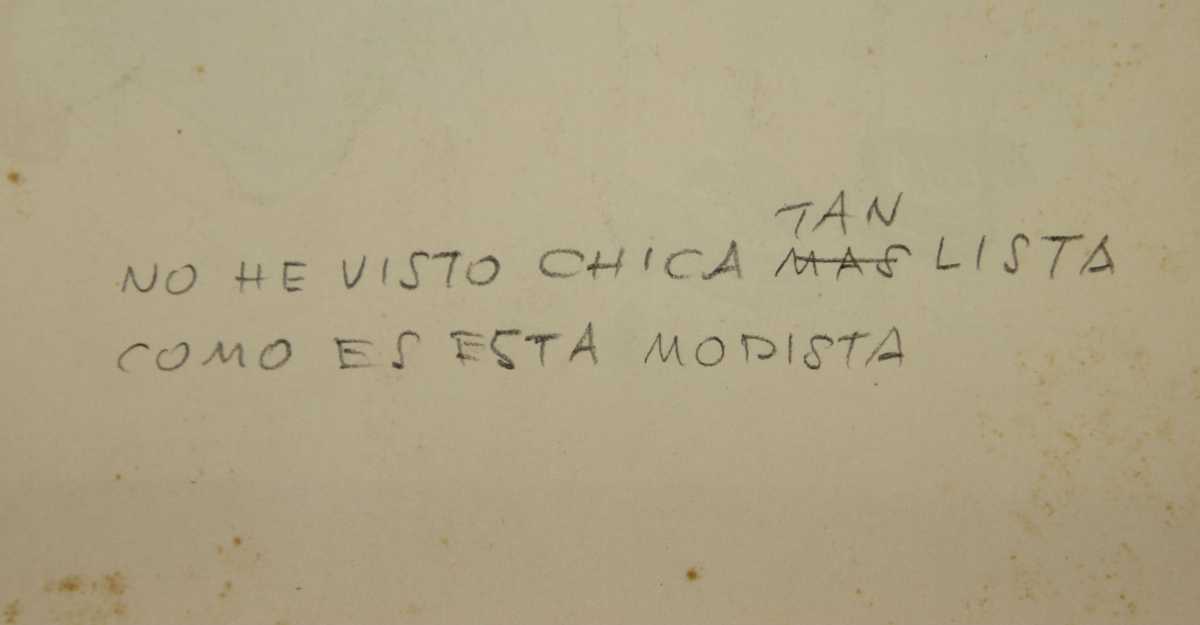 NO HE VISTO CHICA TAN MAS LISTA
COMO ES ESTA MODISTA